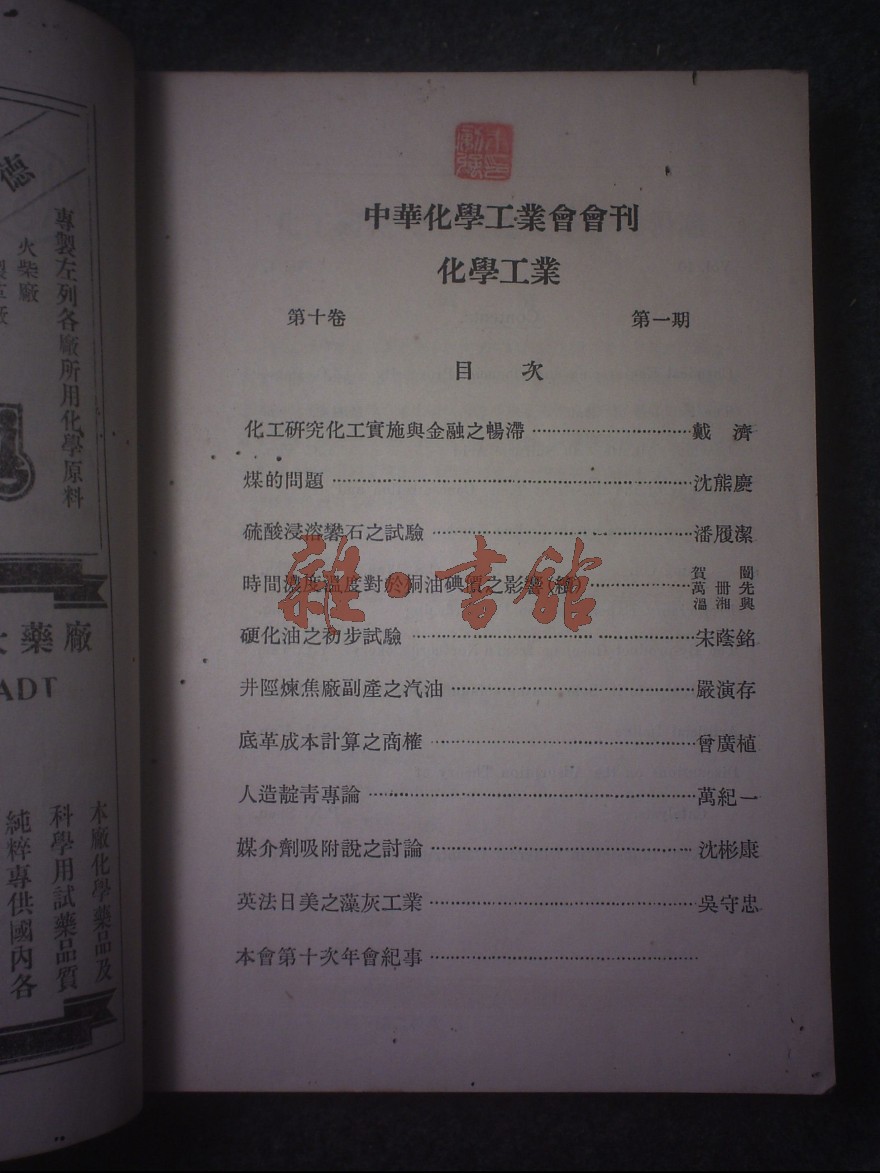 中華化學工業會會刊
化學工業
第十卷 第一期
目 次
化工研究化工實施與金融之暢滯 戴 濟
煤的問題 沈熊慶
硫酸浸溶礬石之試驗 潘履潔
時間濃度溫度對於桐油碘價之影響(續) 賀闓 萬冊先 溫湘興
硬化油之初步試驗 宋蔭銘
井陘煉焦廠副產之汽油 嚴演存
底革成本計算之商榷 曾廣植
人造靛靑專論 萬紀一
媒介劑吸附說之討論 沈彬康
英法日美之藻灰工業 吳守忠
本會第十次年會紀事
雜·書館
德
專製左列各廠所用化學原料
火柴廠
藥廠
ADT
本廠化學藥品及
科學用試藥品質
純粹專供國內各